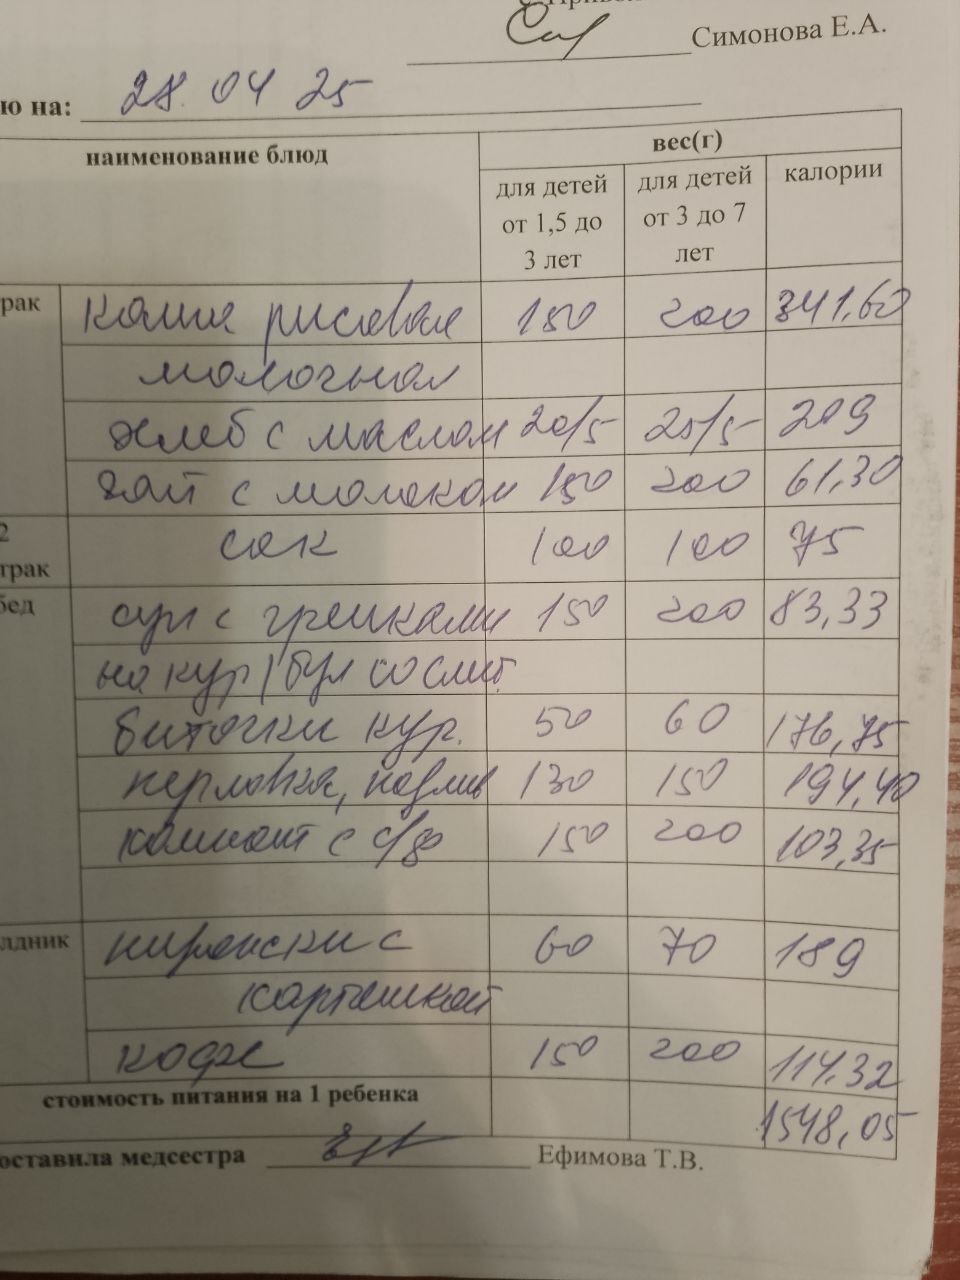 Симонова Е.А.
ю на: 28. 04 25
наименование блюд вес(г)
для детей от 1,5 до 3 лет для детей от 3 до 7 лет калории
рак каша рисовая 150 200 341,60
молочная
хлеб с маслом 20/5 25/5 209
чай с молоком 150 200 61,30
2 трак сок 100 100 75
бед суп с гренками 150 200 83,33
на кур/бул со смет.
биточки кур. 50 60 176,75
перловка, подлив 130 150 194,40
компот с с/ф 150 200 103,35
лдник пирожки с 60 70 189
картошкой
кофе 150 200 114,32
стоимость питания на 1 ребенка 1548,05
оставила медсестра Ефимова Т.В.